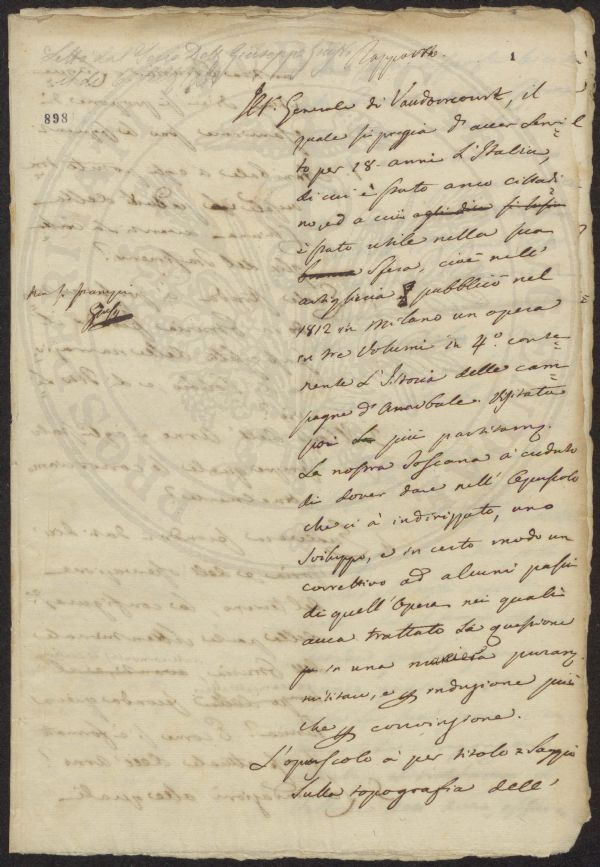 Letto dal Socio Dott. Giuseppe
Rapporto
1
898
Il Sr. Generale di Vaudoncourt, il
quale si pregia d'aver servi-
to per 18 anni l'Italia,
di cui è stato anco cittadi-
no, ed a cui agli dice
è stato utile nella sua
sfera, cioè nell'
artiglieria pubblicò nel
1812 in Milano un opera
in tre volumi in 4.º conte-
nente l'Istoria delle cam-
pagne d'Annibale. Visitata
poi la più partitamte.
la nostra Toscana à creduto
di dover dare nell'Opuscolo
che ci à indirizzato, uno
sviluppo, e in certo modo un
correttivo ad alcuni passi
di quell'Opera, nei quali
avea trattato la questione
in una maniera puramte.
militare, e per induzione più
che per convinzione.
L'opuscolo à per titolo = Saggio
sulla topografia dell'